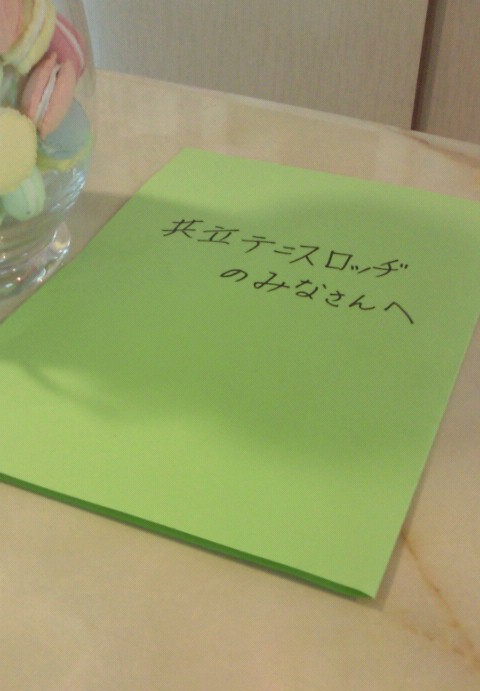 共立テニスロッヂ
のみなさんへ